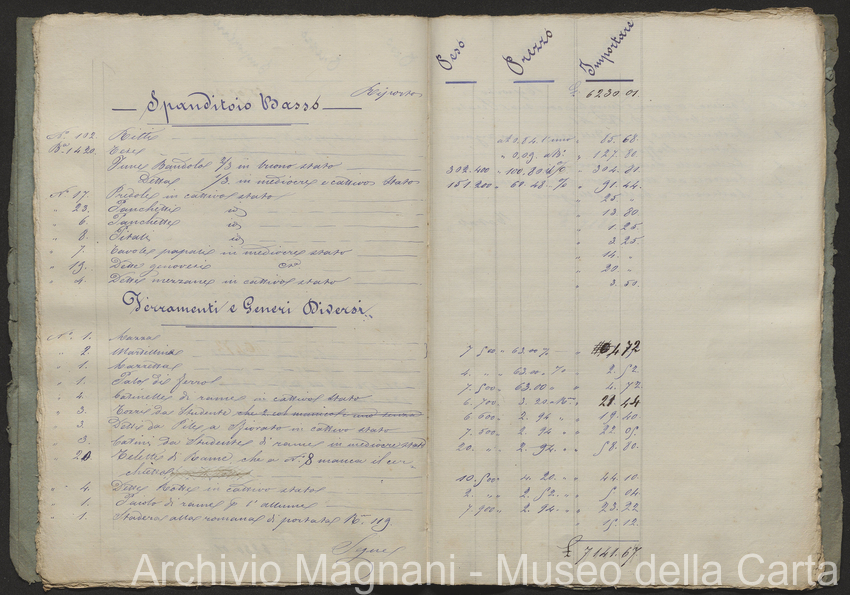 Peso Prezzo Importare
Spanditoio Basso Riporto £ 6230.01
N° 102 Rette a £ 0,84 l'uno " 85.68
1420 " 0,09 " 127.80
Fune Bandola 2/3 in buono stato 302.400 " 100.80 % " 304.81
Detta 1/3 in mediocre e cattivo stato 151.200 " 60.48 % " 91.44
N° 17. Predole in cattivo stato " 25 "
" 23. Panchetti id " 13.80
" 6. Panchette id " 1.25
" 8. id " 3.25
" 7. Tavole in mediocre stato " 14. "
" 13. Dette genovesi " 20. "
" 4. Dette mezzane in cattivo stato " 3.50
Ferramenti e Generi Diversi
N° 1. Mazza
" 2. Martellina 7.500 " 63.00 % " 4.72
" 1. Mazzetta 4. " " 63.00 " % " 2.52
" 1. Palo di Ferro 7.500 " 63.00 " " 4.72
" 4. di rame in cattivo stato 6.700 " 3.20 " 21.44
" 3. da Studente 6.600 " 2.94 " " 19.40
" 3. Dette da in cattivo stato 7.500 " 2.94 " " 22.05
" 3. Catini da Studente di rame in mediocre stato 20. " " 2.94 " " 58.80
" 20 di Rame, che a N. 8 manca il cer-
chietto 10.500 " 4.20 " " 44.10
" 4. Dette Rotte in cattivo stato 2. " " 2.52 " " 5.04
" 1. Paiolo di rame p l'allume 7.900 " 2.94 " " 23.22
" 1. Stadera alla romana di portata K. 119 " 15.12
Segue £ 7141.67
Archivio Magnani - Museo della Carta